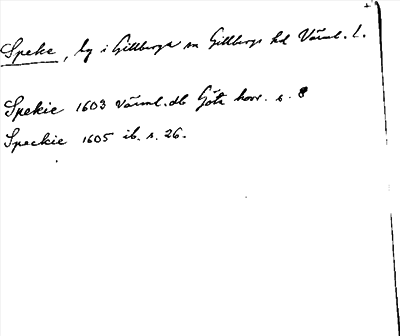 Speke, by i Gillberga sn Gillbergs hd Värml. l.
Spekie 1603 Värml. db Göta hovr. s. 8
Speckie 1605 ib. s. 26.